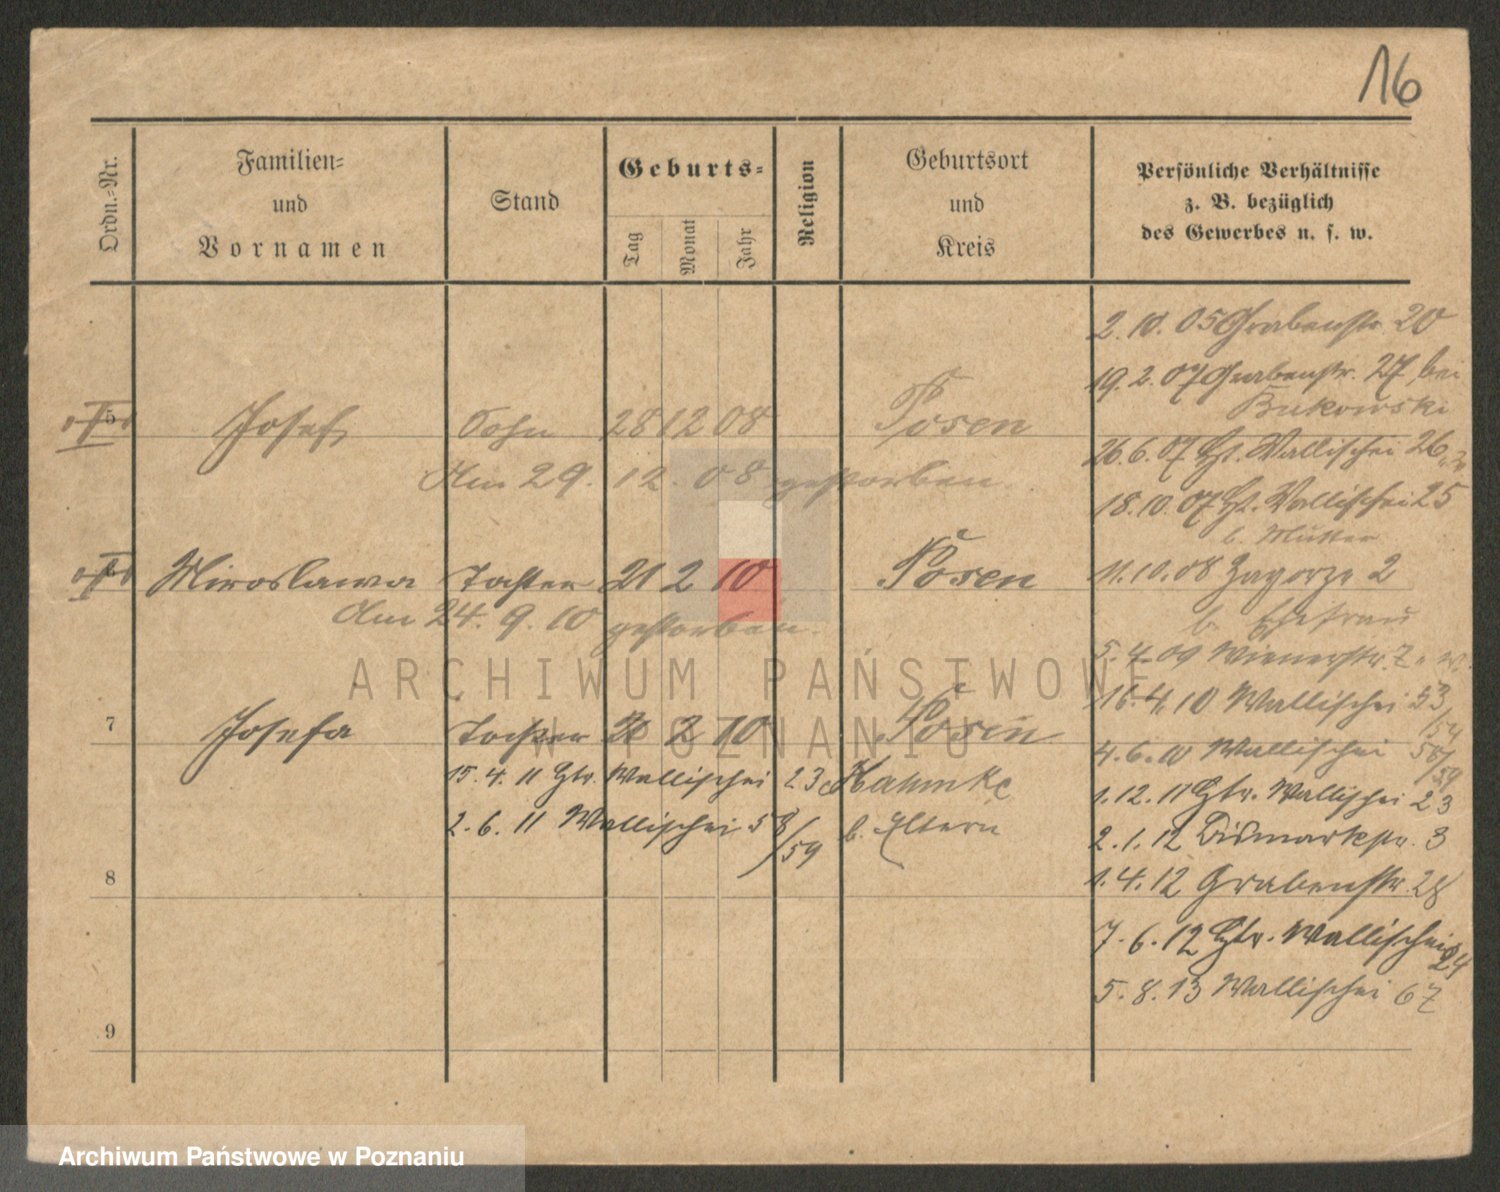 16
Ordn.-Nr.
Familien-
und
Vornamen
Stand
Geburts-
Tag
Monat
Jahr
Religion
Geburtsort
und
Kreis
Persönliche Verhältnisse
z. B. bezüglich
des Gewerbes u. s. w.
5 Josef Sohn 28 12 08 Posen
Am 29. 12. 08 gestorben.
Miroslawa Tochter 21 2 10 Posen
Am 24. 9. 10 gestorben.
7 Josefa Tochter 2 10 Posen
15. 4. 11 Gtr. Wallischei 23 Hahmke
2. 6. 11 Wallischei 58/59 b. Eltern
8
9
2. 10. 05 Grabenstr. 20
19. 2. 07 Grabenstr. 27, bei
Bukowski
26. 6. 07 Wallischei 26
18. 10. 07 Wallischei 25
b. Mutter
11. 10. 08 Zagorze 2
b. Ehefrau
5. 4. 09 Wienerstr. 7
16. 4. 10 Wallischei 53/54
4. 6. 10 Wallischei 58/59
1. 12. 11 Gtr. Wallischei 23
2. 1. 12 Bismarckstr. 3
1. 4. 12 Grabenstr. 28
7. 6. 12 Gtr. Wallischei 24
5. 8. 13 Wallischei 67
ARCHIWUM PAŃSTWOWE
W POZNANIU
Archiwum Państwowe w Poznaniu